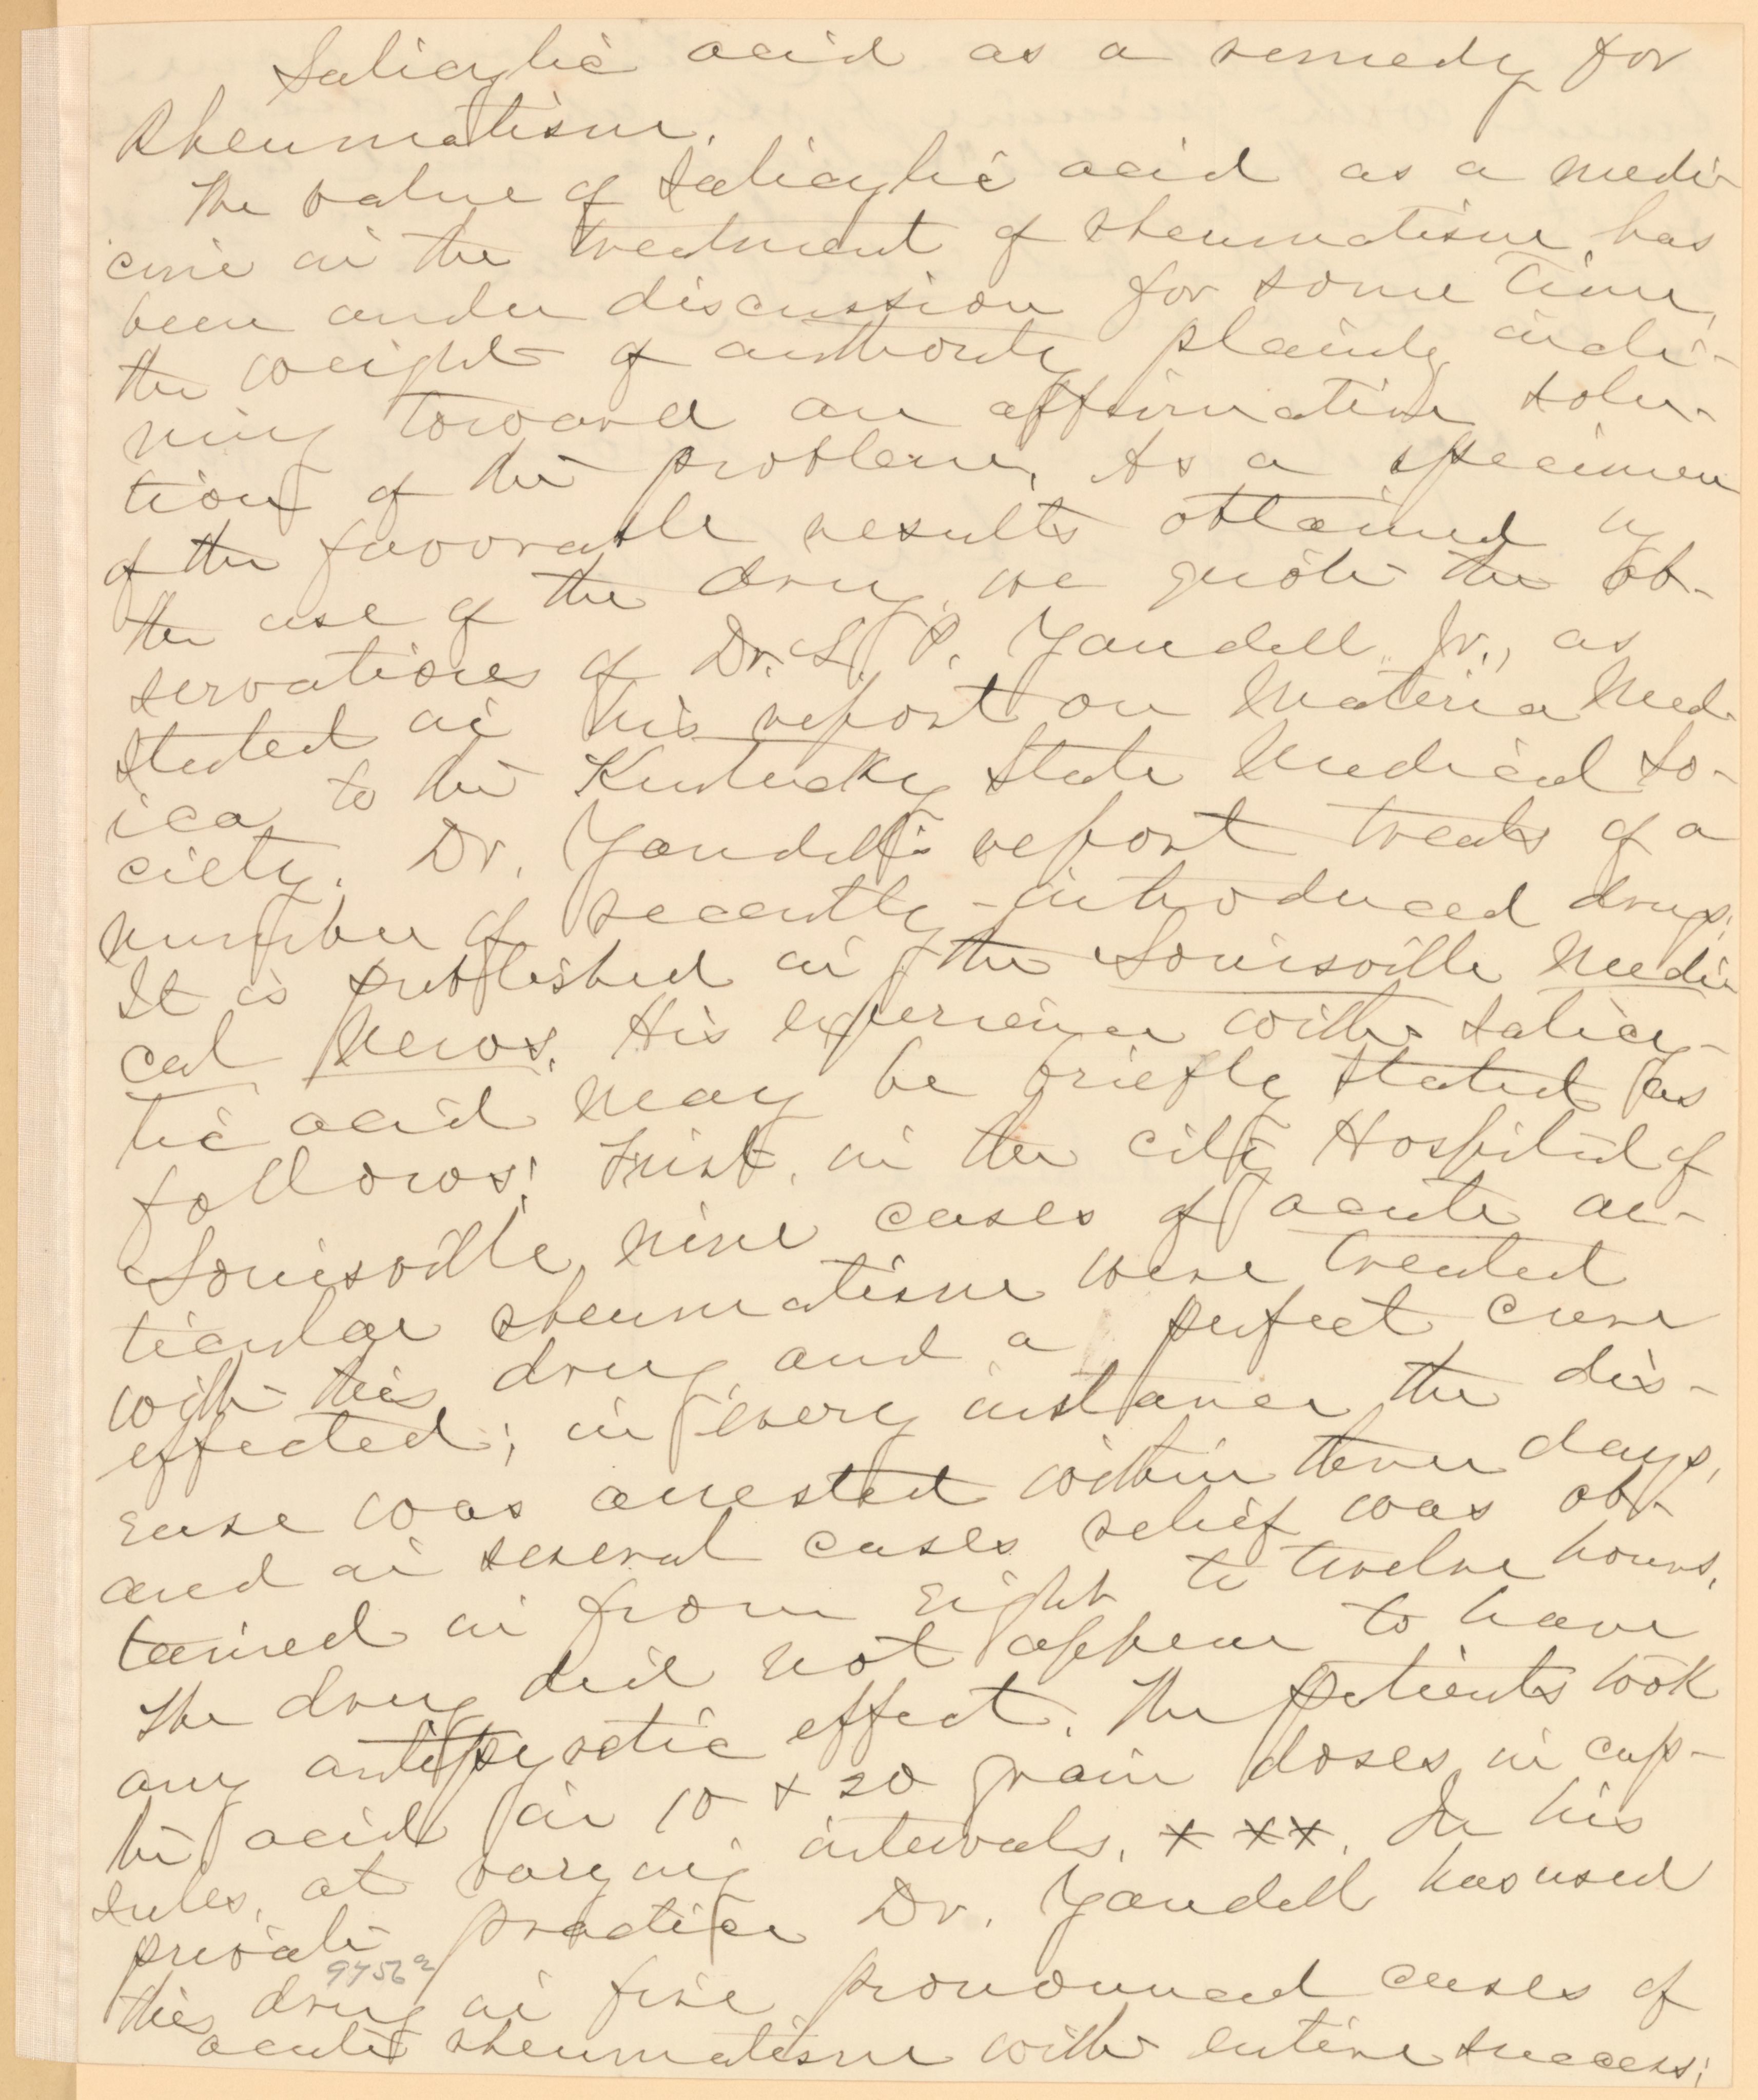 Salicylic acid as a remedy for
Rheumatism.
The value of Salicylic acid as a medi-
cine in the treatment of rheumatism, has
been under discussion for some time,
the weight of authority plainly incli-
ning toward an affirmative solu-
tion of the problem. As a specimen
of the favorable results obtained by
the use of the drug, we quote the ob-
servations of Dr. L. P. Yandell, Jr., as
stated in his report on Materia Med-
ica to the Kentucky State Medical So-
ciety. Dr. Yandell's report treats of a
number of recently-introduced drugs.
It is published in the Louisville Medi-
cal News. His experience with salicy-
lic acid may be briefly stated as
follows: First, in the city Hospital of
Louisville, nine cases of acute ar-
ticular rheumatism were treated
with this drug and a perfect cure
effected; in every instance the dis-
ease was arrested within three days,
and in several cases relief was ob-
tained in from eight to twelve hours.
The drug did not appear to have
any antipyretic effect. The patients took
the acid in 10 + 20 grain doses, in cap-
sules, at varying intervals. xxx. In his
private practice Dr. Yandell has used
9456a
this drug in five pronounced cases of
acute rheumatism with entire success;